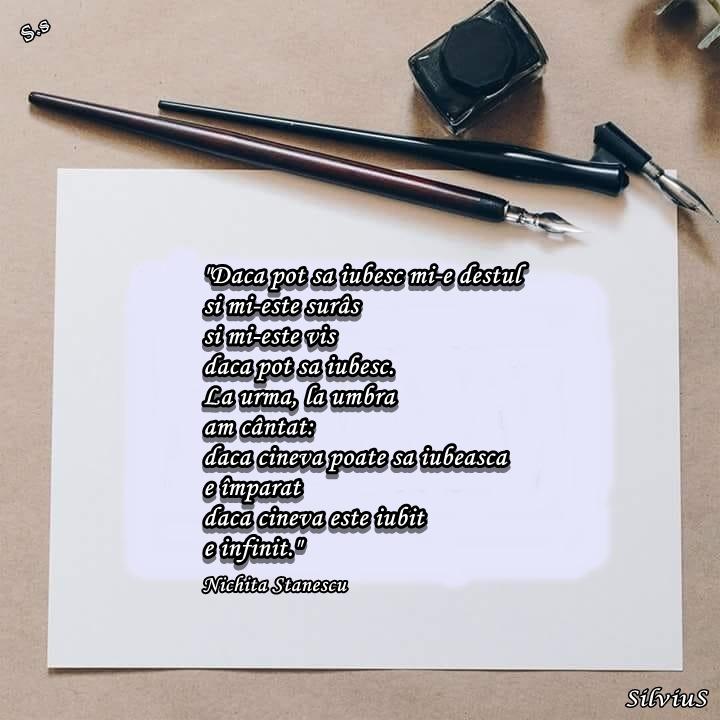 S.s
"Daca pot sa iubesc mi-e destul
si mi-este surâs
si mi-este vis
daca pot sa iubesc.
La urma, la umbra
am cântat:
daca cineva poate sa iubeasca
e împarat
daca cineva este iubit
e infinit."
Nichita Stanescu
SilviuS